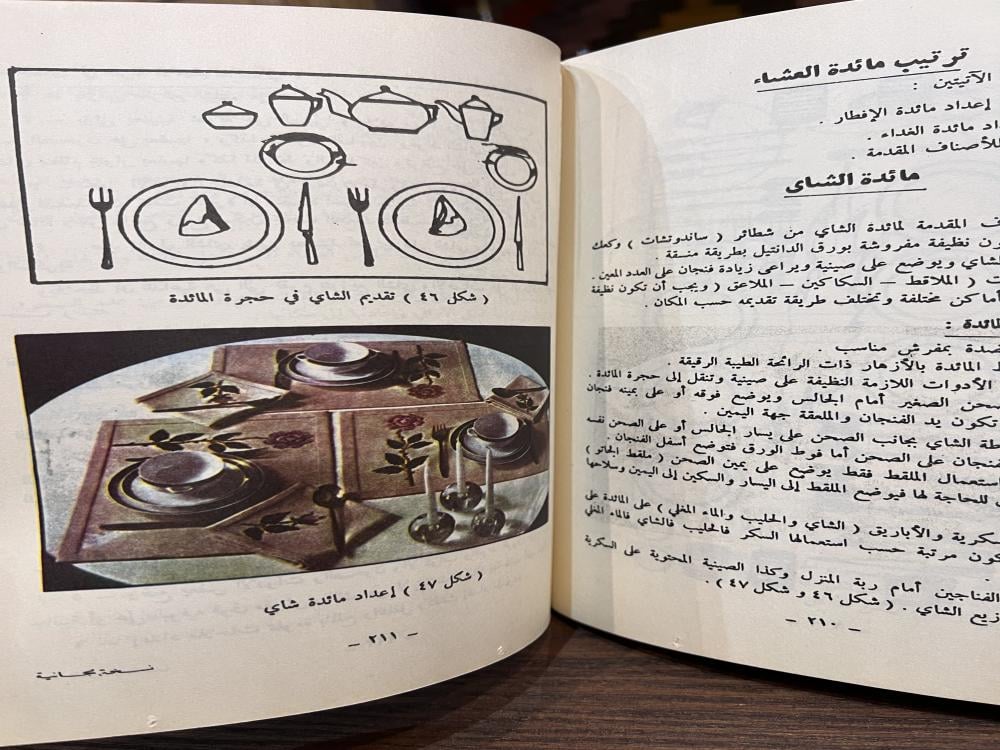 ترتيب مائدة العشاء
الآتيتين :
إعداد مائدة الإفطار .
مائدة الغداء .
للأصناف المقدمة .
مائدة الشاى
المقدمة لمائدة الشاي من شطائر ( ساندوتشات ) وكعك
نظيفة مفروشة بورق الدانتيل بطريقة منسقة .
الشاي ويوضع على صينية ويراعى زيادة فنجان على العدد المعين .
( الملاقط — السكاكين — الملاعق ( ويجب أن تكون نظيفة
أماكن مختلفة وتختلف طريقة تقديمه حسب المكان .
بمفرش مناسب .
المائدة بالأزهار ذات الرائحة الطيبة الرقيقة .
الأدوات اللازمة النظيفة على صينية وتنقل إلى حجرة المائدة .
الصغير أمام الجالس ويوضع فوقه أو على يمينه فنجان
تكون يد الفنجان والملعقة جهة اليمين .
الشاي بجانب الصحن على يسار الجالس أو على الصحن نفسه
على الصحن أما فوط الورق فتوضع أسفل الفنجان .
الملقط فقط يوضع على يمين الصحن ( ملقط الجاتو )
للحاجة لها فيوضع الملقط إلى اليسار والسكين إلى اليمين وسلاحها
والأباريق ( الشاي والحليب والماء المغلي ) على المائدة على
مرتبة حسب استعمالها السكر فالحليب فالشاي فالماء المغلي
.
الفناجين أمام ربة المنزل وكذا الصينية المحتوية على السكرية
الشاي . ( شكل ٤٦ و شكل ٤٧ ) .
— ٢١٠ —
( شكل ٤٦ ) تقديم الشاي في حجرة المائدة
( شكل ٤٧ ) إعداد مائدة شاي
— ٢١١ —
نسخة مجانية